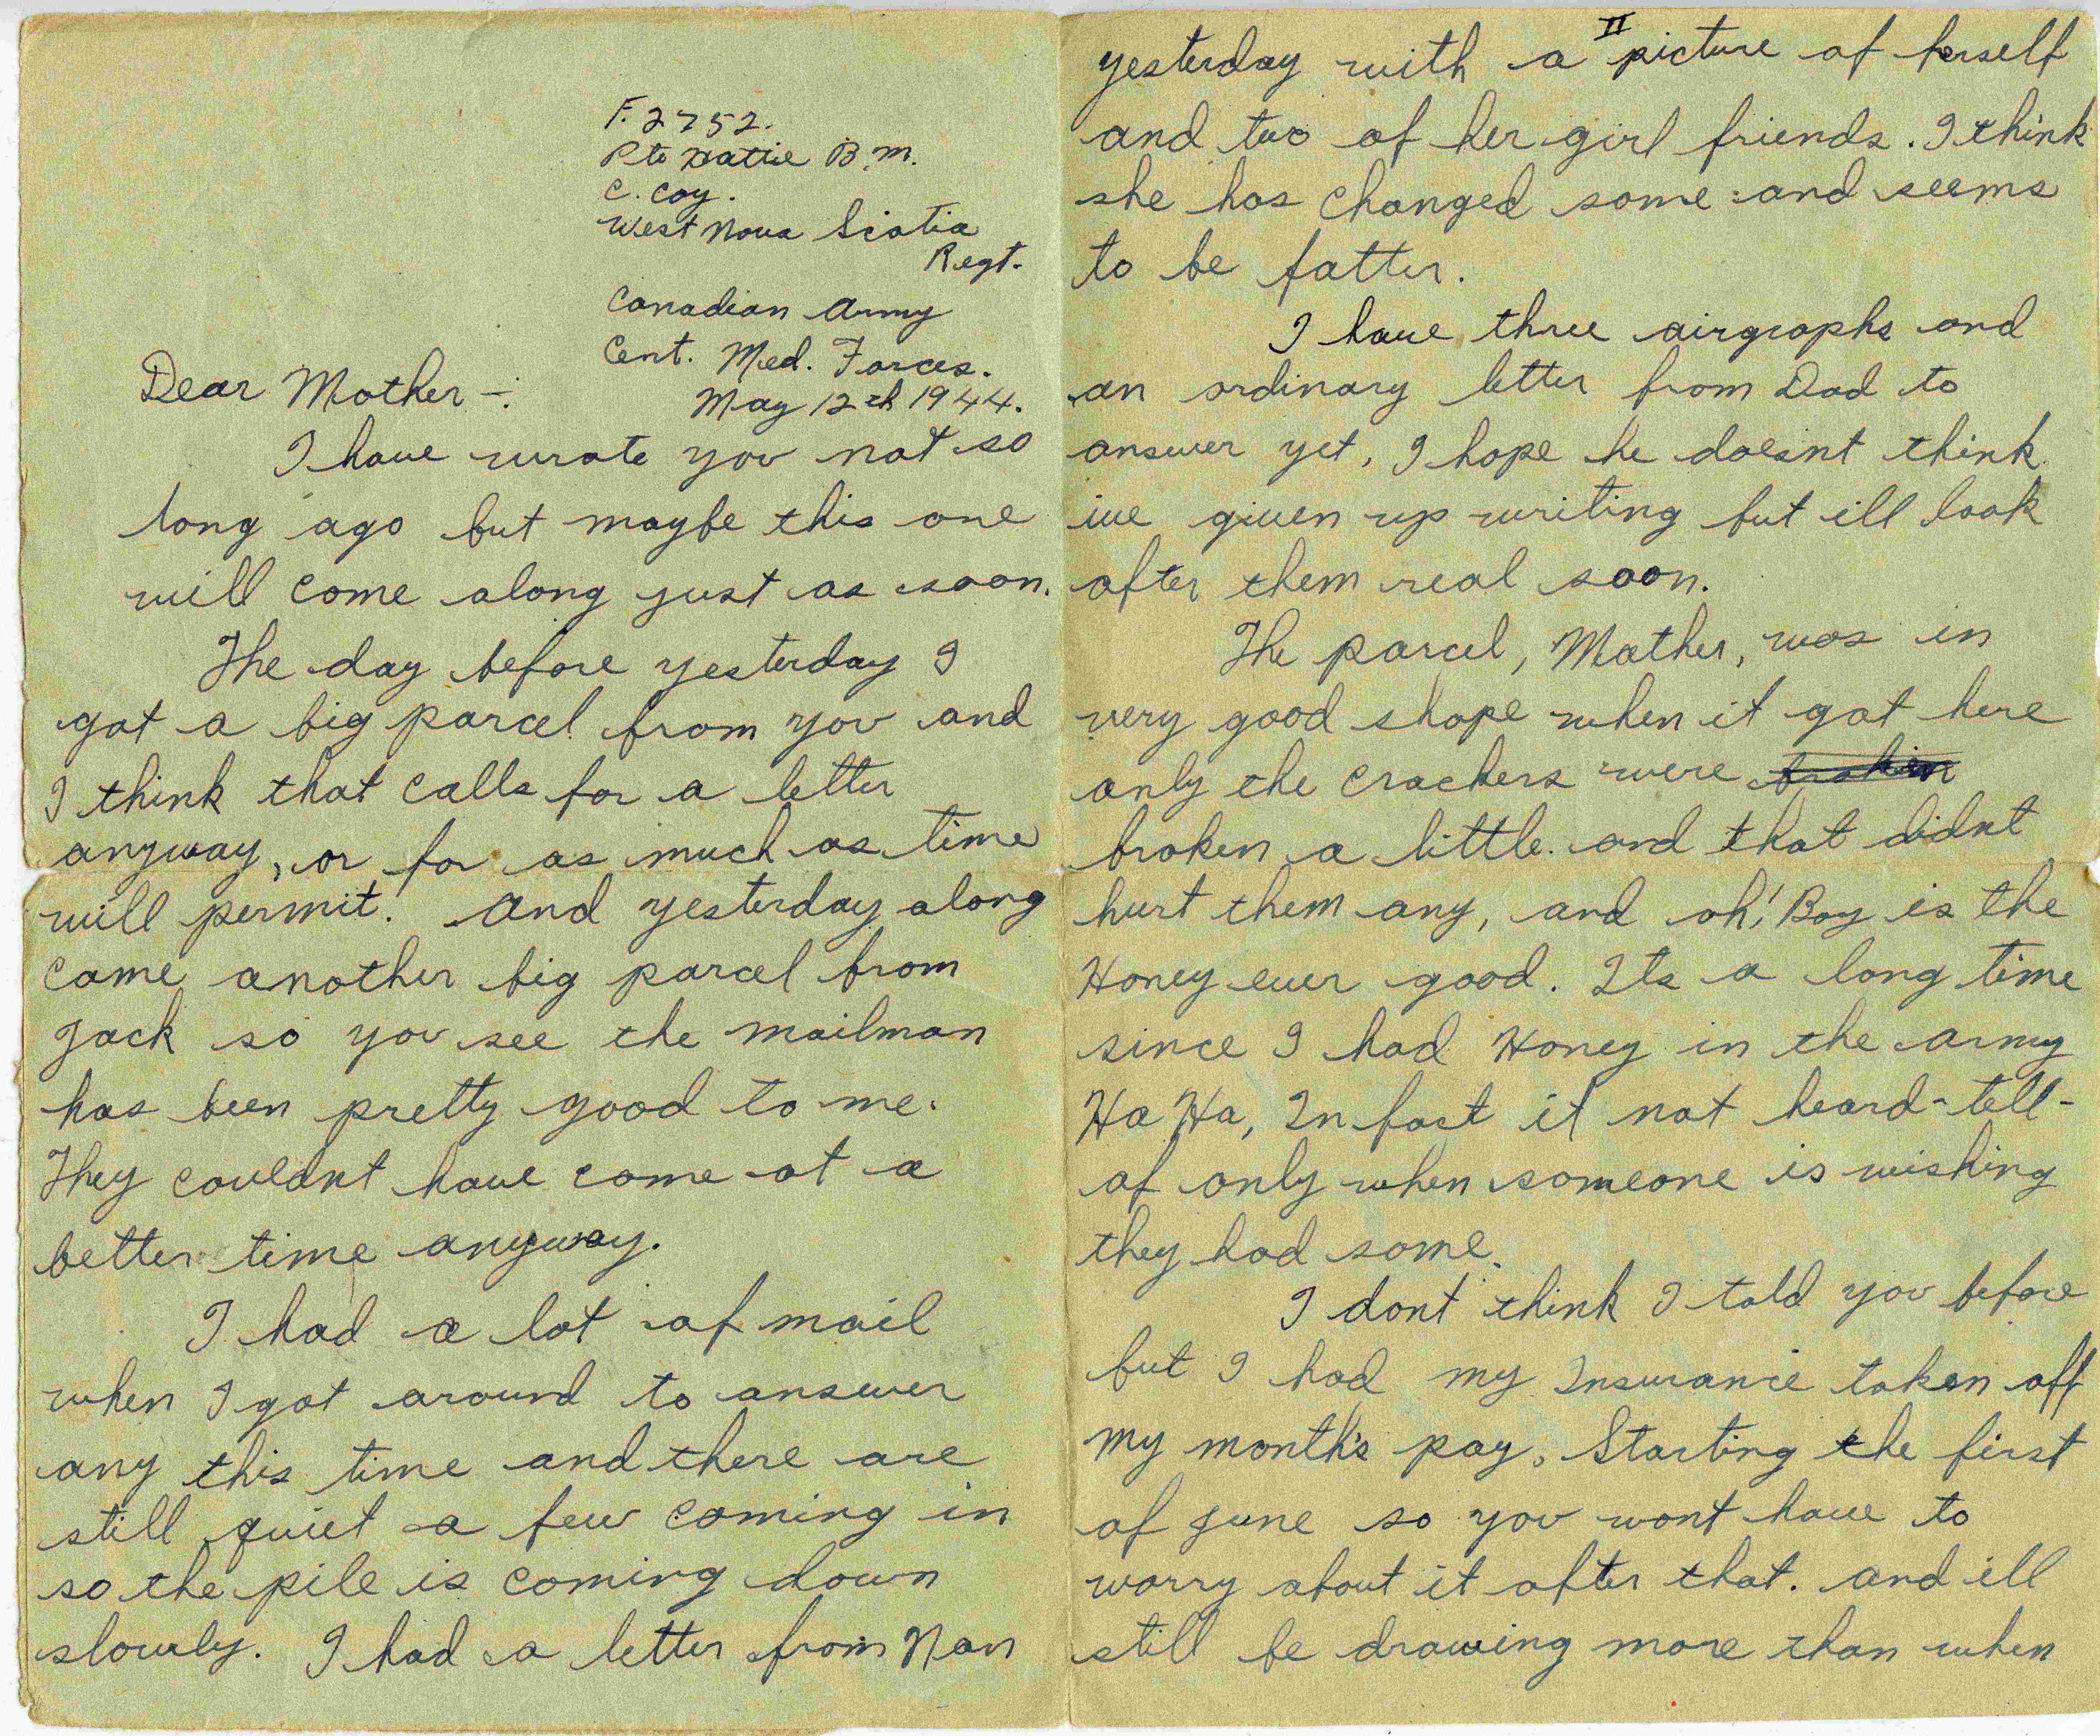 F. 2752.
Pte Hattie B.M.
C. Coy.
West Nova Scotia
Regt.
Canadian Army
Cent. Med. Forces.
May 12th 1944.
Dear Mother -:
I have wrote you not so
long ago but maybe this one
will come along just as soon.
The day before yesterday I
got a big parcel from you and
I think that calls for a letter
anyway, or for as much as time
will permit. And yesterday along
came another big parcel from
Jack so you see the mailman
has been pretty good to me.
They couldnt have come at a
better time anyway.
I had a lot of mail
when I got around to answer
any this time and there are
still quiet a few coming in
so the pile is coming down
slowly. I had a letter from Nan
II
yesterday with a picture of herself
and two of her girl friends. I think
she has changed some and seems
to be fatter.
I have three airgraphs and
an ordinary letter from Dad to
answer yet, I hope he doesnt think
ive given up writing but ill look
after them real soon.
The parcel, Mother, was in
very good shape when it got here
only the crackers were broken
broken a little. and that didnt
hurt them any, and oh! Boy is the
Honey ever good. Its a long time
since I had Honey in the army
Ha Ha, In fact it not heard-tell-
of only when someone is wishing
they had some.
I dont think I told you before
but I had my Insurance taken off
my month's pay, Starting the first
of June so you wont have to
worry about it after that. and ill
still be drawing more than when